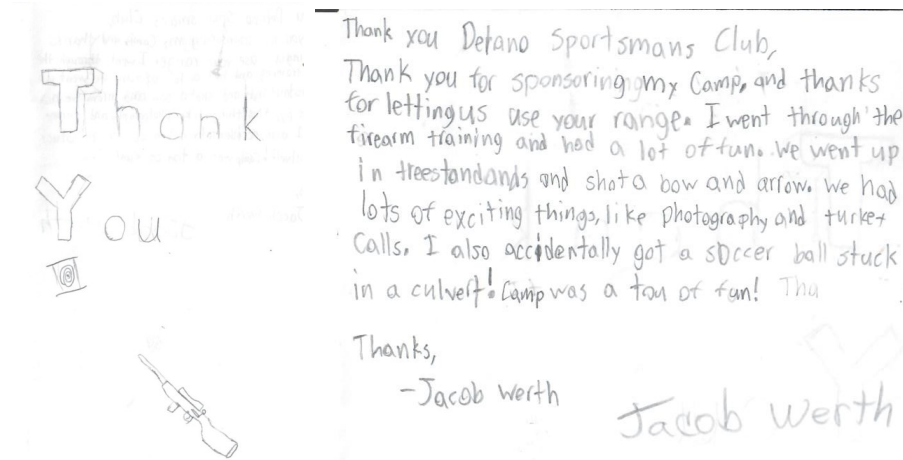 Thank
You
Thank you Delano Sportsmans Club,
Thank you for sponsoring my Camp, and thanks
for letting us use your range. I went through the
firearm training and had a lot of fun. We went up
in treestandands and shot a bow and arrow. We had
lots of exciting things, like photography and turkey
calls. I also accidentally got a soccer ball stuck
in a culvert! Camp was a ton of fun! Tha
Thanks,
-Jacob Werth
Jacob Werth